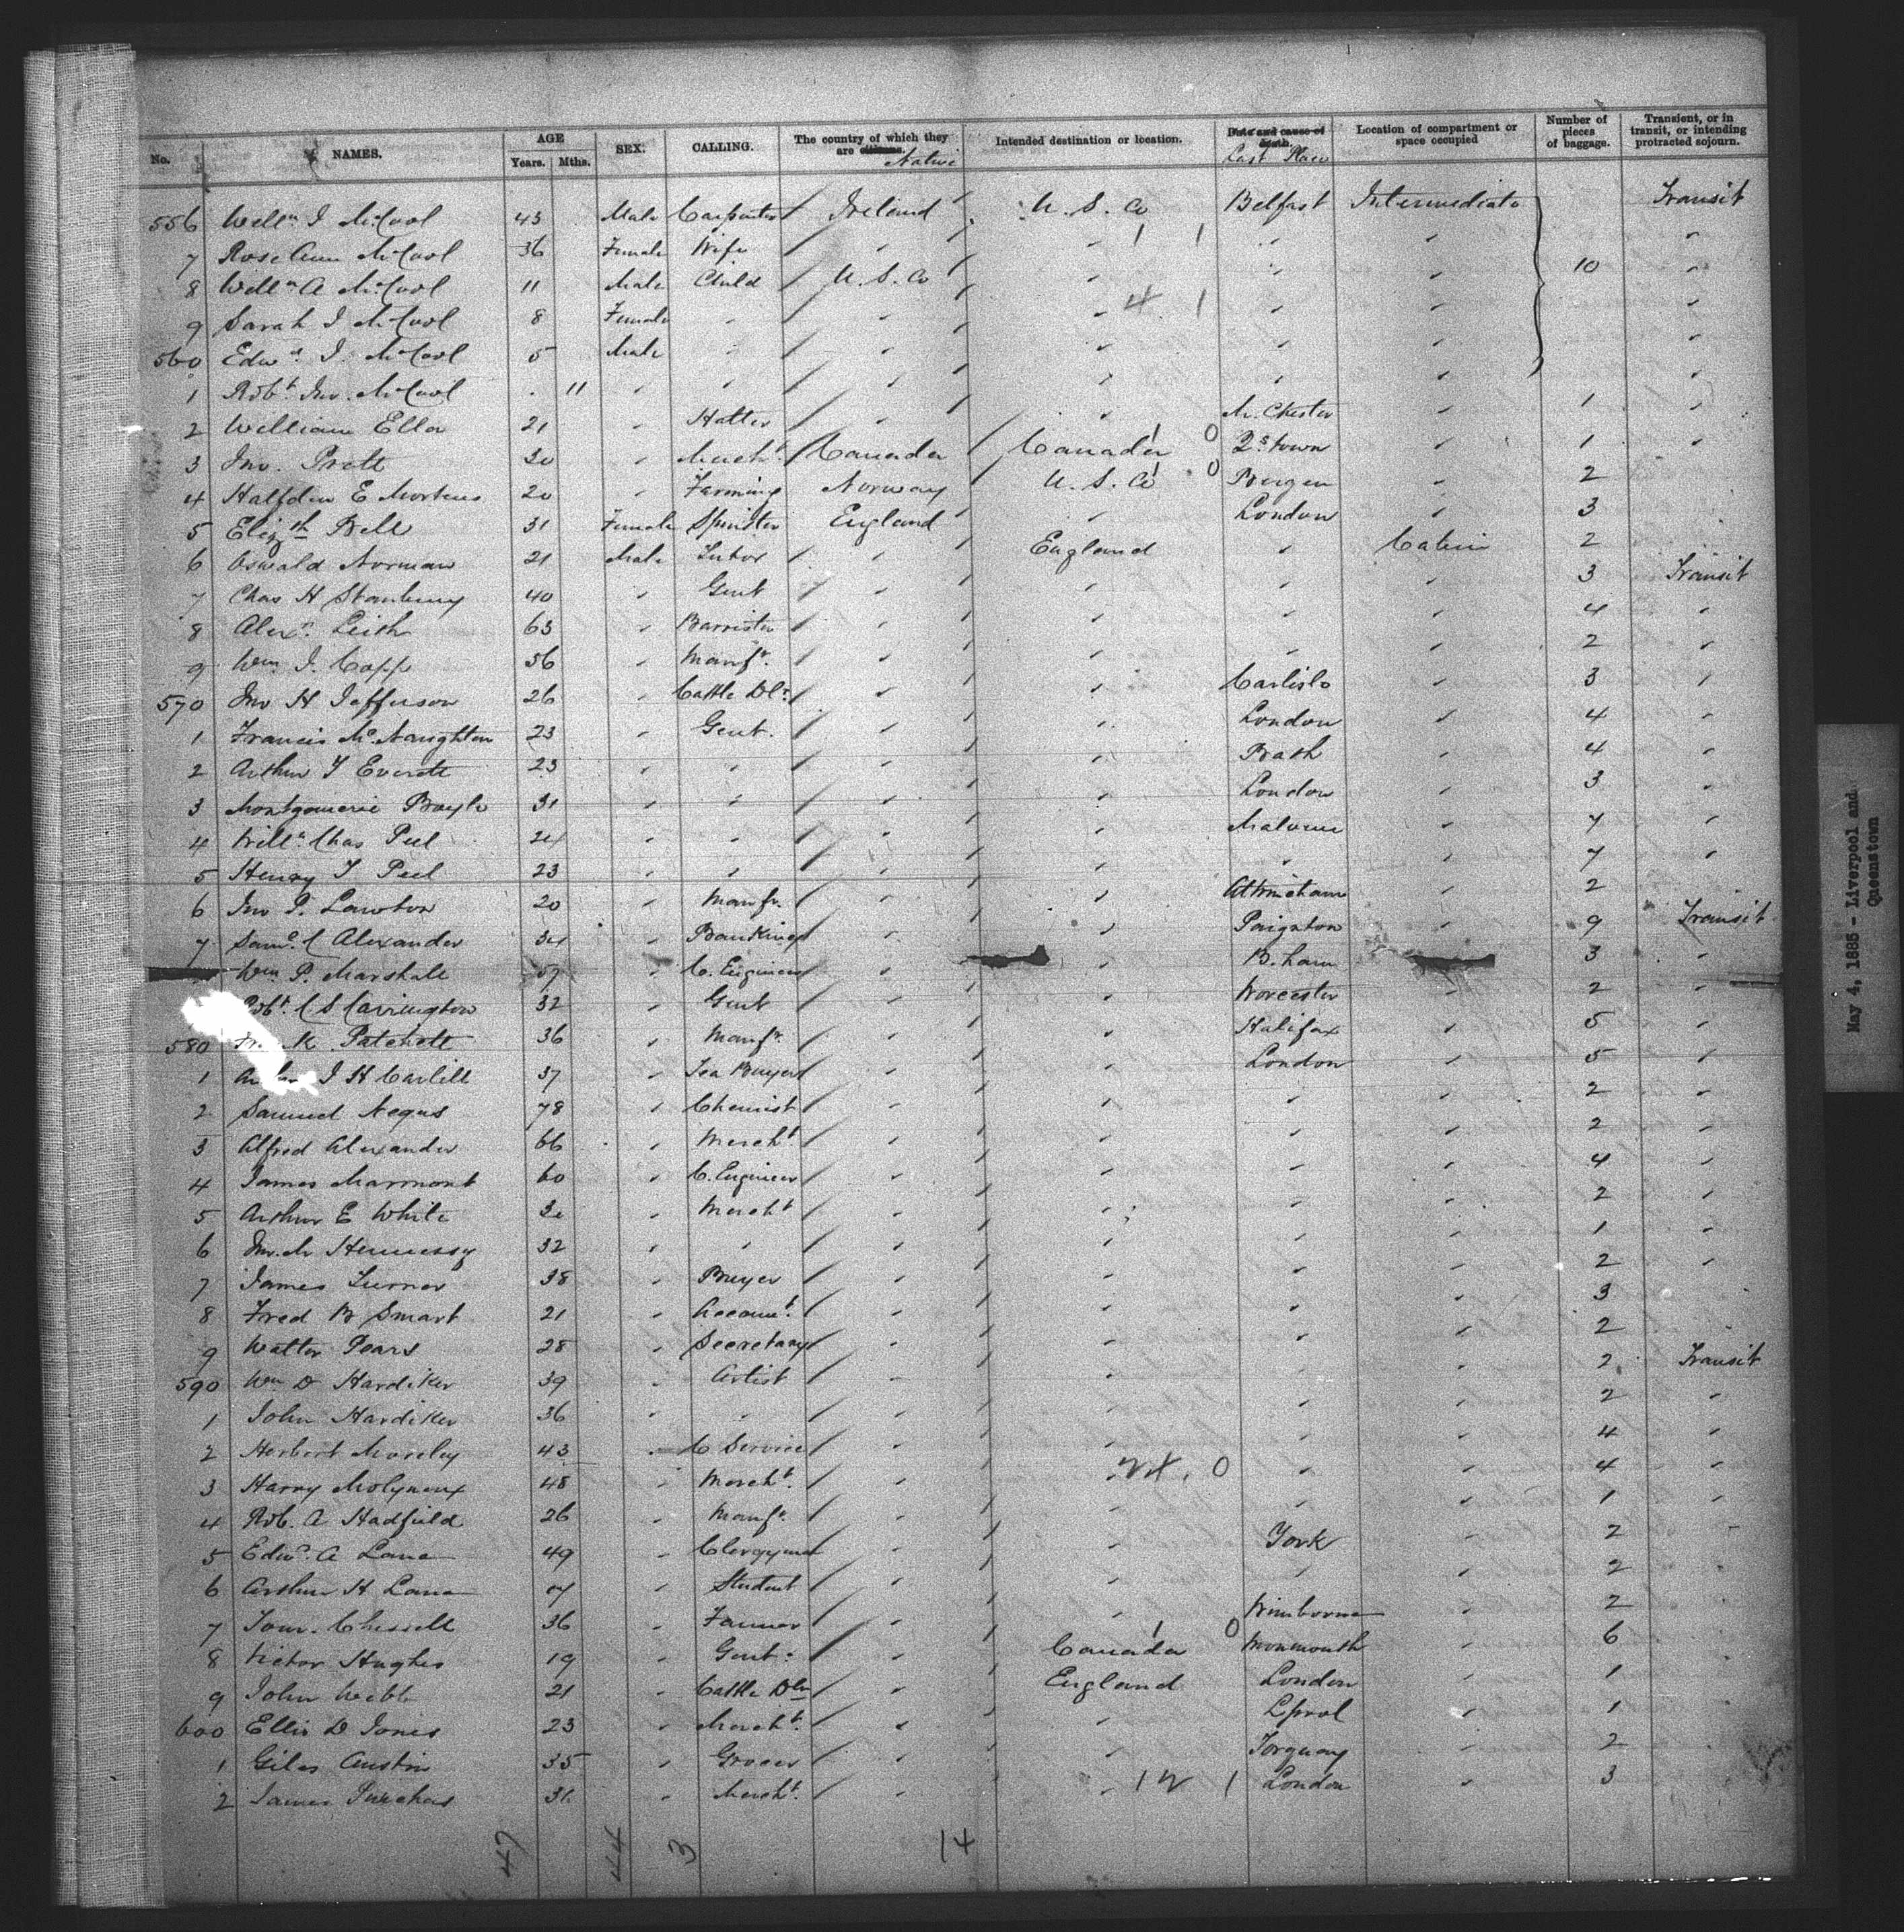 No. NAMES. AGE Years. Mths. SEX. CALLING. The country of which they are citizens. Native Intended destination or location. Date and cause of death. Last Place Location of compartment or space occupied Number of pieces of baggage. Transient, or in transit, or intending protracted sojourn.
556 Willm J McCool 43 Male Carpenter Ireland U. S. Co Belfast Intermediate Transit
7 Rose Ann McCool 36 Female Wife " " 1 1 " " "
8 Willm A McCool 11 Male Child U. S. Co " " " 10 "
9 Sarah J McCool 8 Female " " " 4 1 " " "
560 Edwd J. McCool 5 Male " " " " " "
1 Robt Jno. McCool . 11 " " " " " " "
2 William Ella 21 " Hatter " " M. Chester " 1 "
3 Jno. Pratt 30 " Mercht Canada Canada 1 0 Qstown " 1 "
4 Halfdan E Mortens 20 " Farming Norway U. S. Co 1 0 Bergen " 2
5 Elizth Bell 31 Female Spinster England " London 3
6 Oswald Norman 21 Male Tutor " England " Cabin 2
7 Chas H Stanbury 40 " Gent " " " " 3 Transit
8 Alexr. Leith 63 " Barrister " " " " 4 "
9 Wm J. Copp 56 " Manfr. " " " 2 "
570 Jno H Jefferson 26 " Cattle Dlr. " " Carlisle 3 "
1 Francis McNaughton 23 " Gent. " " London " 4 "
2 Arthur T Everett 23 " " " " Bath 4 "
3 Montgomerie Boyle 31 " " " " London " 3 "
4 Willm Chas Peel 24 " " " " Malvern " 7 "
5 Henry T Peel 23 " " " " " " 7 "
6 Jno P. Lawton 20 " Manfr. " " Altrincham " 2
7 Saml. C Alexander 34 " Banking " " Paignton 9 Transit
Wm P. Marshall 57 " C. Engineer " " B.ham 3 "
Robt. C S Carrington 32 " Gent " " Worcester " 2 "
580 K Patchett 36 " Manfr. " " Halifax " 5 "
1 J H Carlill 37 " Tea Buyer " " London " 5 "
2 Samuel Negus 78 " Chemist " " " " 2 "
3 Alfred Alexander 66 " Mercht " " " " 2 "
4 James Marmont 60 " C. Engineer " " " " 4 "
5 Arthur E White " Mercht " " " " 2 "
6 Jno. M Hennessy 32 " " " " " " 1 "
7 James Turner 38 " Buyer " " " " 2 "
8 Fred B Smart 21 " Account. " " " " 3
9 Walter Pears 28 " Secretary " " " " 2
590 Wm D Hardiker 39 " Artist " " " 2 Transit
1 John Hardiker 36 " " " " " " 2 "
2 Herbert Moseley 43 " C Service " " " " 4 "
3 Harry Molyneux 48 " Mercht. " " 24. 0 " " 4 "
4 Rob. A Hadfield 26 " Manfr. " " " " 1 "
5 Edwd. A Lane 49 " Clergyman " " York " 2 "
6 Arthur H Lane " Student " " " " 2
7 36 " Farmer " " Wimborne " 2
8 Victor Hughes 19 " Gent. " Canada 1 0 Monmouth " 6
9 John Webb 21 " Cattle Dlr " England London " 1
600 Ellis D Jones 23 " Mercht. " " Lpool " 1
1 Giles Austin 35 " Grocer " " Torquay " 2
2 James Purchas " Mercht. " " 12 1 London " 3
47 44 3 14
May 4, 1885 - Liverpool and
Queenstown